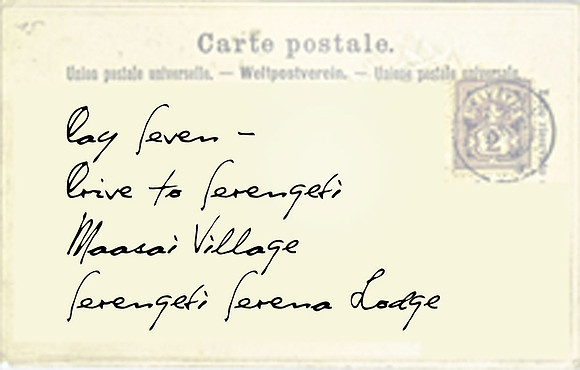 Carte postale.
Union postale universelle. — Weltpostverein. — Unione postale universale.
2
Day Seven –
Drive to Serengeti
Maasai Village
Serengeti Serena Lodge